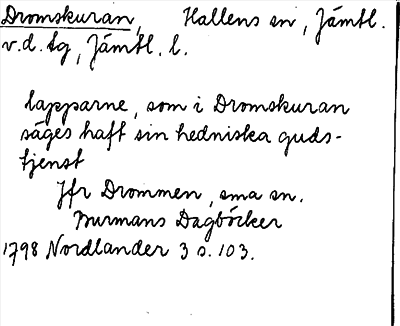 Dromskuran, Hallens sn, Jämtl.
v.d. tg, Jämtl. l.
lapparne, som i Dromskuran
säges haft sin hedniska guds-
tjenst
Jfr Drommen, sma sn.
Burmans Dagböcker
1798 Nordlander 3 s. 103.